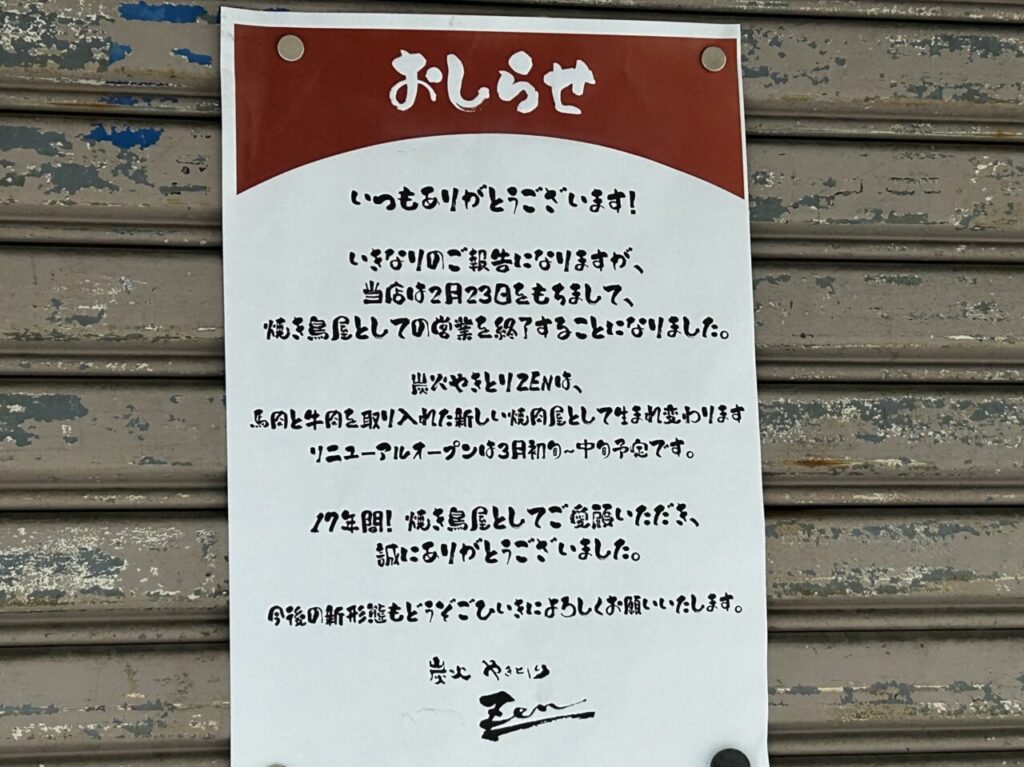 おしらせ
いつもありがとうございます!
いきなりのご報告になりますが、
当店は2月23日をもちまして、
焼き鳥屋としての営業を終了することになりました。
炭火やきとりZENは、
馬肉と牛肉を取り入れた新しい焼肉屋として生まれ変わります
リニューアルオープンは3月初旬~中旬予定です。
17年間! 焼き鳥屋としてご愛顧いただき、
誠にありがとうございました。
今後の新形態もどうぞごひいきによろしくお願いいたします。
炭火 やきとり
Zen